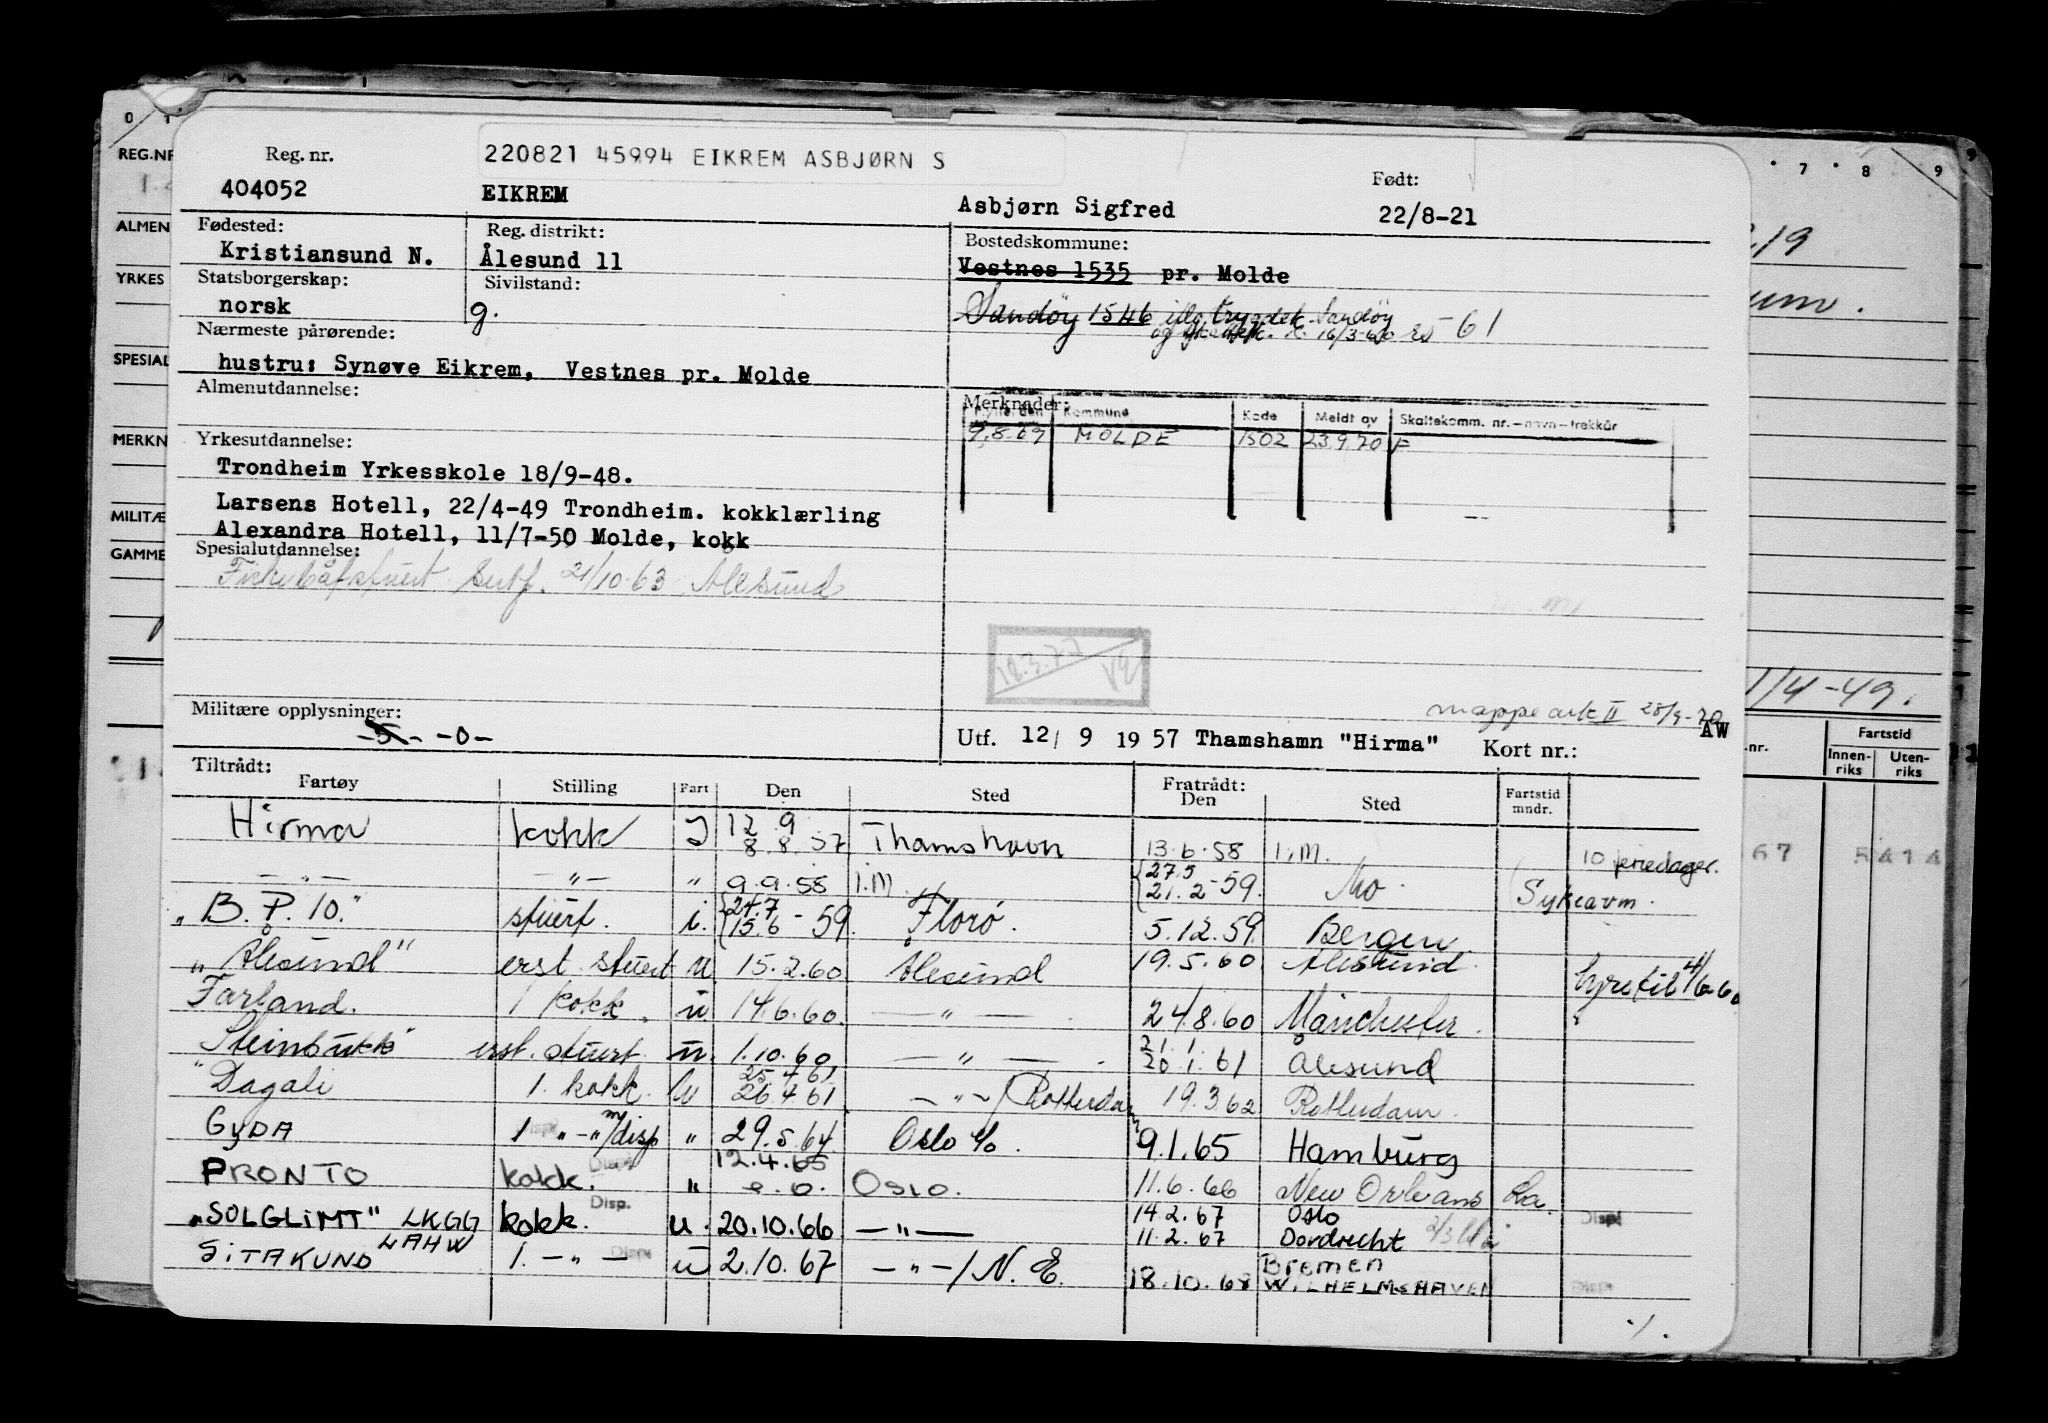 Reg. nr. 220821 45994 EIKREM ASBJØRN S Født:
404052 EIKREM Asbjørn Sigfred 22/8-21
Fødested: Reg. distrikt: Bostedskommune:
Kristiansund N. Ålesund 11 Vestnes 1535 pr. Molde
Statsborgerskap: Sivilstand: Sandöy 1546 iflg. trygdek. Sandöy
norsk g. og 16/3-60 61
Nærmeste pårørende:
hustru: Synøve Eikrem, Vestnes pr. Molde
Almenutdannelse: Merknader:
Kommune Kode Meldt av Skattekomm. nr.-navn-trekkår
9.8.69 MOLDE 1502 23.9.70 F
Yrkesutdannelse:
Trondheim Yrkesskole 18/9-48.
Larsens Hotell, 22/4-49 Trondheim. kokklærling
Alexandra Hotell, 11/7-50 Molde, kokk
Spesialutdannelse:
Fiskebåtstuert Sertf. 21/10-63 Ålesund
mappe ark II 28/9-70
Militære opplysninger:
-5- -0- Utf. 12/ 9 19 57 Thamshamn "Hirma" Kort nr.: AW
Tiltrådt: Fratrådt:
Fartøy Stilling Fart Den Sted Den Sted Fartstid mndr.
Hirma kokk I 12 9 8.8.57 Thamshavn 13.6.58 I.M. 10 feriedager.
-"- -"- " 9.9.58 I.M. 27.5 21.2-59. Mo. Sykeavm.
"B.P. 10." stuert. i. 24.7 15.6-59. Florø. 5.12.59. Bergen.
"Ålesund" erst. stuert u 15.2.60 Ålesund 19.5.60 Ålesund. hyre til 4/6-60
Farland. 1 kokk. u. 14.6.60. -"- 24.8.60 Manchester.
Steinbukk" erst. stuert. u. 1.10.60 -"- 21.1. 20.1.61 Ålesund
"Dagali 1. kokk. u 25.4.61 26.4.61 -"-/Rotterdam 19.3.62 Rotterdam.
GYDA 1 "-" m/disp " 29.5.64 Oslo %. 9.1.65 Hamburg
PRONTO kokk. Disp. " 12.4.65 Oslo. 11.6.66 New Orleans La.
"SOLGLIMT" LKGG kokk. Disp. u. 20.10.66 -"- 14.2.67 Oslo Disp
11.2.67 Dordrecht
SITAKUND LAHW 1. -"- Disp. u 2.10.67 -"-/N.E. 18.10.68 Bremen WILHELMSHAVEN Disp.
./.
0 1 7 8 9
REG.NR
ALMEN
YRKES
SPESIAL
MERKN
MILITÆ
GAMME
1/4-49.
nr. Fartstid
Innen-riks Uten-riks
67 5414